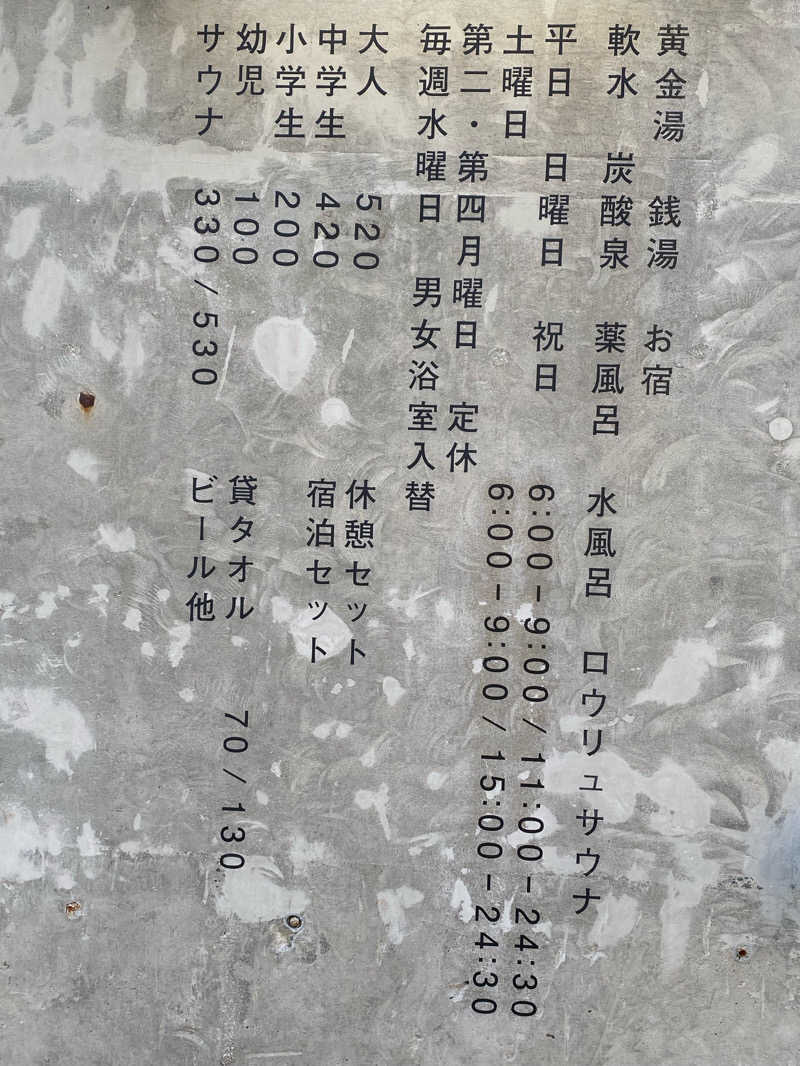 黄金湯 銭湯 お宿
軟水 炭酸泉 薬風呂 水風呂 ロウリュサウナ
平日 日曜日 祝日 6:00-9:00/11:00-24:30
土曜日 6:00-9:00/15:00-24:30
第二・第四月曜日 定休
毎週水曜日 男女浴室入替
大人 520 休憩セット
中学生 420 宿泊セット
小学生 200
幼児 100 貸タオル 70/130
サウナ 330/530 ビール他